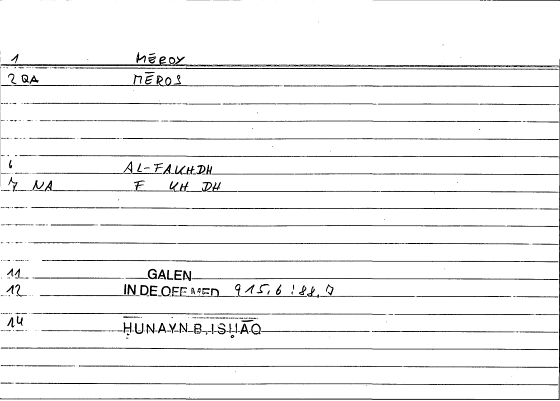 1 MĒROY
2 QA MĒROS
6 AL-FAKHDH
7 NA F KH DH
11 GALEN
12 IN DE OFF MED 915,6 : 88,7
14 ḤUNAYN B. ISḤĀQ